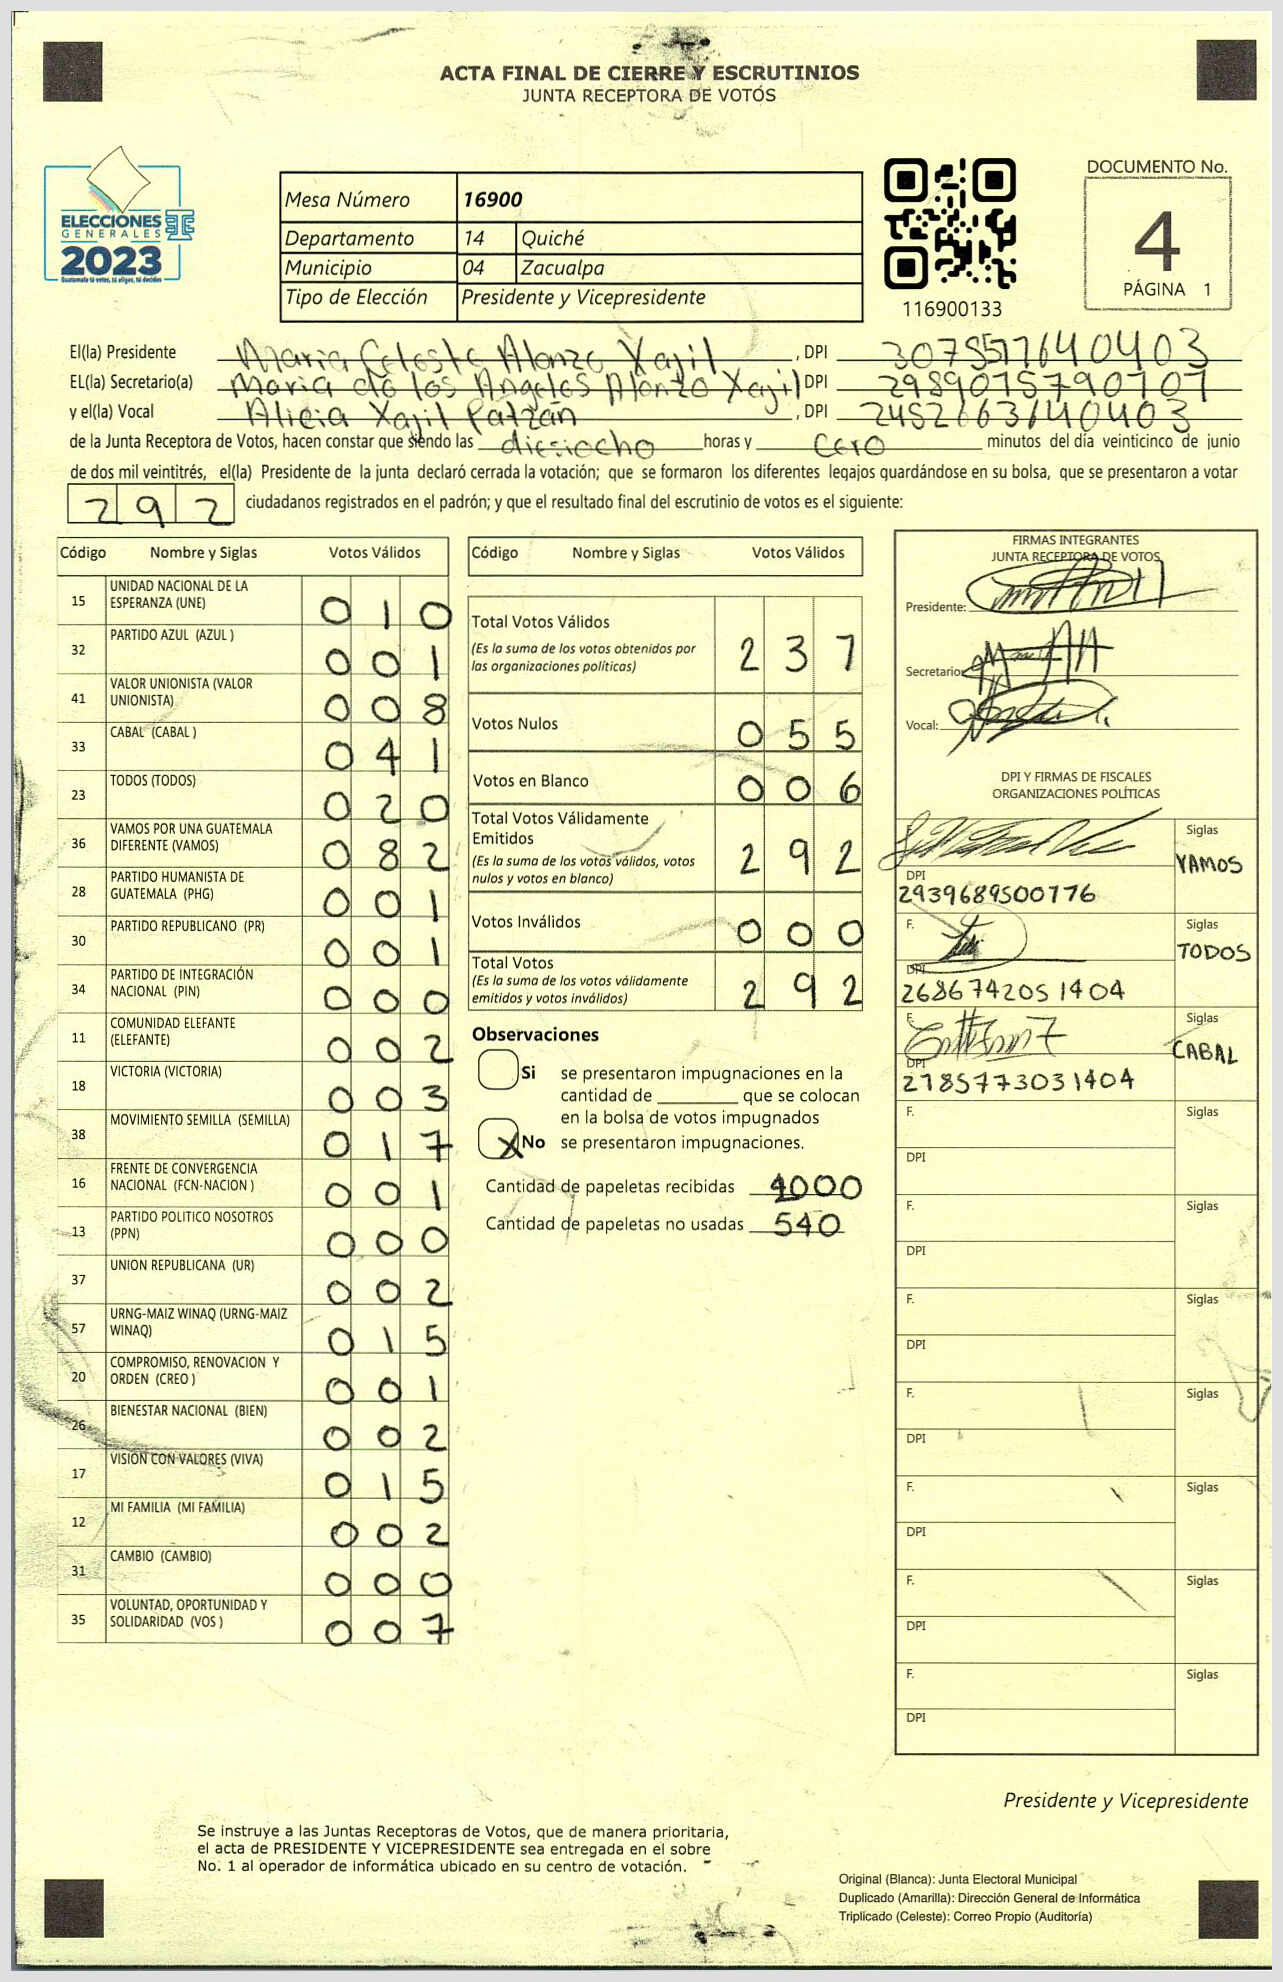 ACTA FINAL DE CIERRE Y ESCRUTINIOS
JUNTA RECEPTORA DE VOTOS
ELECCIONES
GENERALES
2023
Guatemala tú votas, tú eliges, tú decides
Mesa Número 16900
Departamento 14 Quiché
Municipio 04 Zacualpa
Tipo de Elección Presidente y Vicepresidente
116900133
DOCUMENTO No.
4
PÁGINA 1
El(la) Presidente Maria Celeste Alonzo Xajil , DPI
EL(la) Secretario(a) Maria de los Angeles Alonzo Xajil DPI 2989075790707
y el(la) Vocal Alicia Xajil Patzán , DPI 2452663640403
de la Junta Receptora de Votos, hacen constar que siendo las diesiocho horas y Cero minutos del día veinticinco de junio
de dos mil veintitrés, el(la) Presidente de la junta declaró cerrada la votación; que se formaron los diferentes legajos quardándose en su bolsa, que se presentaron a votar
292 ciudadanos registrados en el padrón; y que el resultado final del escrutinio de votos es el siguiente:
Código Nombre y Siglas Votos Válidos
15 UNIDAD NACIONAL DE LA
ESPERANZA (UNE) 010
32 PARTIDO AZUL (AZUL ) 001
41 VALOR UNIONISTA (VALOR
UNIONISTA) 008
33 CABAL (CABAL ) 041
23 TODOS (TODOS) 020
36 VAMOS POR UNA GUATEMALA
DIFERENTE (VAMOS) 082
28 PARTIDO HUMANISTA DE
GUATEMALA (PHG) 001
30 PARTIDO REPUBLICANO (PR) 001
34 PARTIDO DE INTEGRACIÓN
NACIONAL (PIN) 000
11 COMUNIDAD ELEFANTE
(ELEFANTE) 002
18 VICTORIA (VICTORIA) 003
38 MOVIMIENTO SEMILLA (SEMILLA) 017
16 FRENTE DE CONVERGENCIA
NACIONAL (FCN-NACION ) 001
13 PARTIDO POLITICO NOSOTROS
(PPN) 000
37 UNION REPUBLICANA (UR) 002
57 URNG-MAIZ WINAQ (URNG-MAIZ
WINAQ) 015
20 COMPROMISO, RENOVACION Y
ORDEN (CREO ) 001
26 BIENESTAR NACIONAL (BIEN) 002
17 VISION CON VALORES (VIVA) 015
12 MI FAMILIA (MI FAMILIA) 002
31 CAMBIO (CAMBIO) 000
35 VOLUNTAD, OPORTUNIDAD Y
SOLIDARIDAD (VOS ) 007
Código Nombre y Siglas Votos Válidos
Total Votos Válidos
(Es la suma de los votos obtenidos por
las organizaciones políticas) 237
Votos Nulos 055
Votos en Blanco 006
Total Votos Válidamente
Emitidos
(Es la suma de los votos válidos, votos
nulos y votos en blanco) 292
Votos Inválidos 000
Total Votos
(Es la suma de los votos válidamente
emitidos y votos inválidos) 292
Observaciones
Si se presentaron impugnaciones en la
cantidad de ________ que se colocan
en la bolsa de votos impugnados
X No se presentaron impugnaciones.
Cantidad de papeletas recibidas
Cantidad de papeletas no usadas 540
FIRMAS INTEGRANTES
JUNTA RECEPTORA DE VOTOS
Presidente:
Secretario:
Vocal:
DPI Y FIRMAS DE FISCALES
ORGANIZACIONES POLÍTICAS
F. Siglas
VAMOS
DPI
2939689500776
F. Siglas
TODOS
DPI
2686742051404
F. Siglas
CABAL
DPI
2785773031404
F. Siglas
DPI
F. Siglas
DPI
F. Siglas
DPI
F. Siglas
DPI
F. Siglas
DPI
F. Siglas
DPI
F. Siglas
DPI
Presidente y Vicepresidente
Se instruye a las Juntas Receptoras de Votos, que de manera prioritaria,
el acta de PRESIDENTE Y VICEPRESIDENTE sea entregada en el sobre
No. 1 al operador de informática ubicado en su centro de votación.
Original (Blanca): Junta Electoral Municipal
Duplicado (Amarilla): Dirección General de Informática
Triplicado (Celeste): Correo Propio (Auditoría)